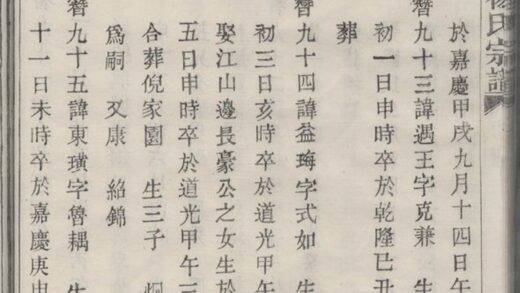 楊氏宗譜
於嘉慶甲戌九月十四日午
簪九十三諱遇王字克兼 生
初一日申時卒於乾隆己丑
葬
簪九十四諱益珻字式如 生
初三日亥時卒於道光甲午
娶江山邊長豪公之女生於
五日申時卒於道光甲午三
合葬倪家園 生三子 炯
為嗣 又康 紹錦
簪九十五諱東璜字魯耦 生
十一日未時卒於嘉慶庚申